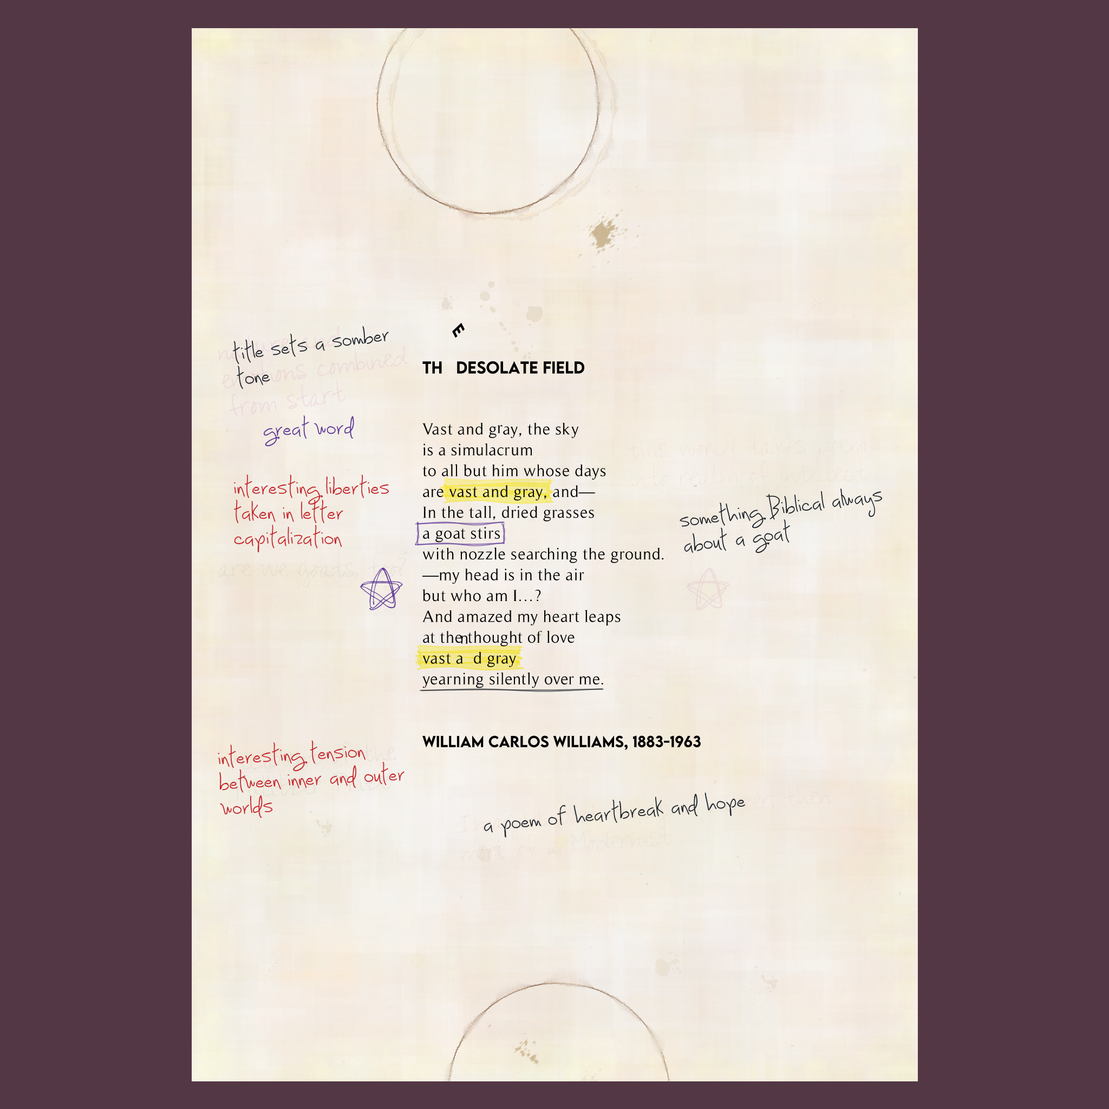 title sets a somber
tone
E
TH DESOLATE FIELD
great word
Vast and gray, the sky
is a simulacrum
to all but him whose days
are vast and gray, and—
In the tall, dried grasses
a goat stirs
with nozzle searching the ground.
—my head is in the air
but who am I...?
And amazed my heart leaps
at thenthought of love
vast a d gray
yearning silently over me.
interesting liberties
taken in letter
capitalization
something Biblical always
about a goat
are we goats, too?
WILLIAM CARLOS WILLIAMS, 1883-1963
interesting tension
between inner and outer
worlds
a poem of heartbreak and hope
emotions combined
from start